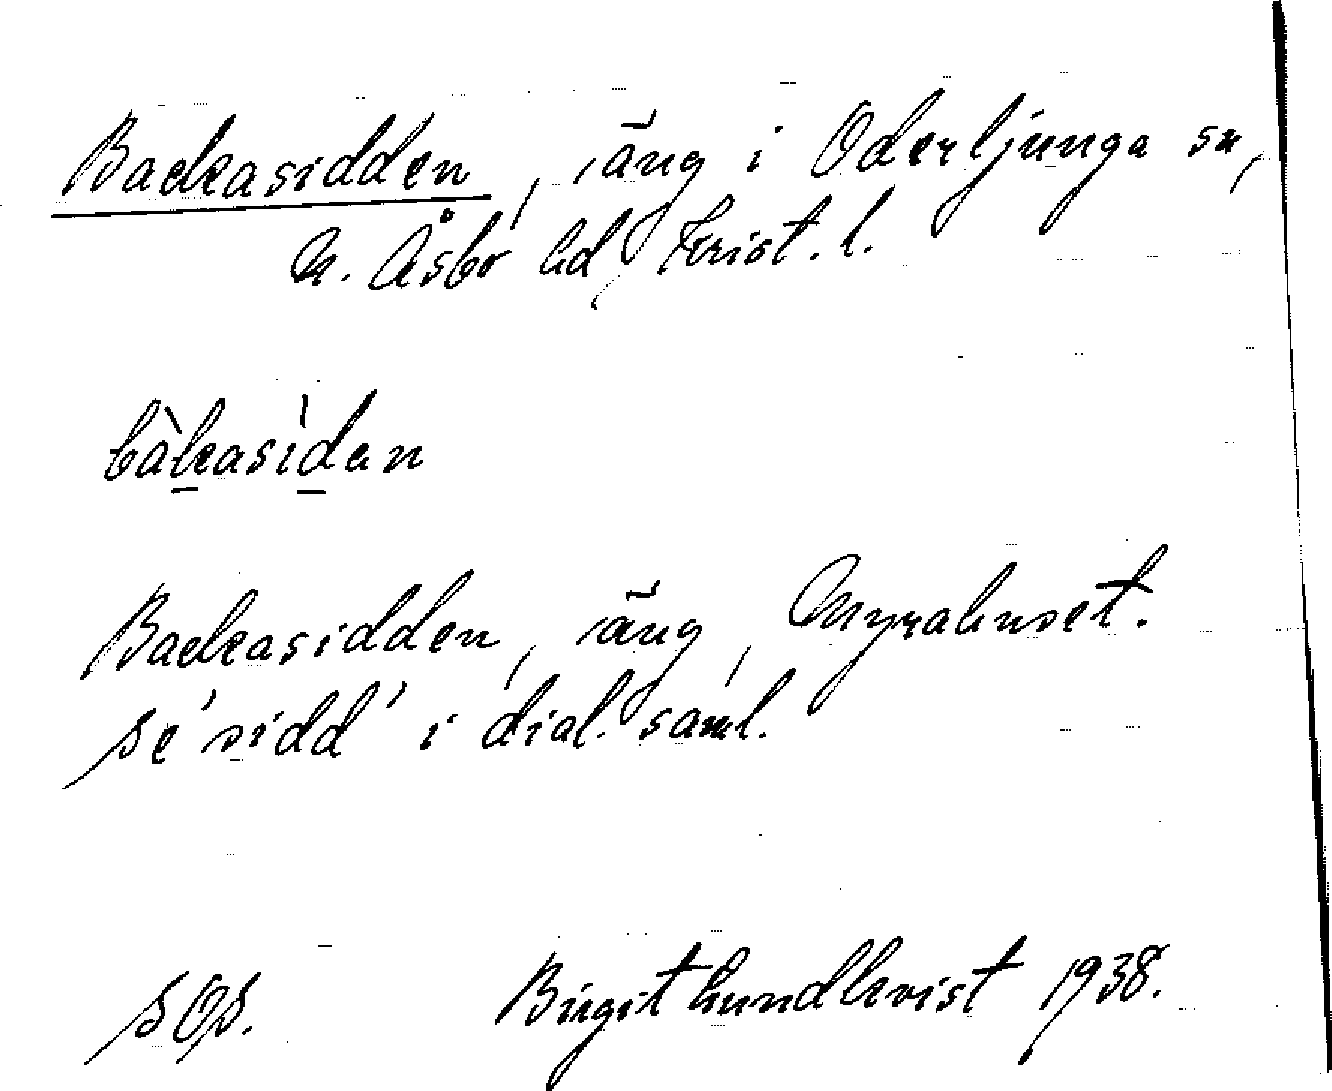 Backasidden, äng i Oderljunga sn,
N. Åsbo hd, Krist. l.
bàkasìdan
Backasidden, äng, Myrahuset.
se 'sidd' i dial. saml.
SOS. Birgit Lundkvist 1938.